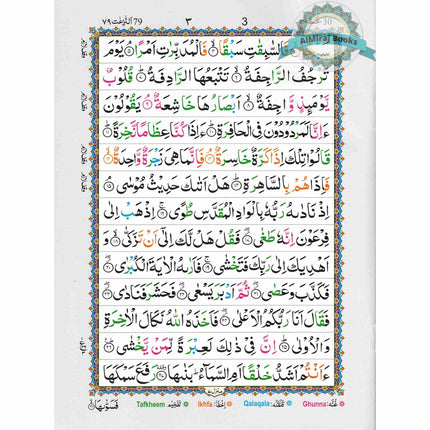 79 اَلنّٰزِعٰت ٧٩ ٣ 3 30
AlMiraj Books
فَالسّٰبِقٰتِ سَبْقًا ۙ فَالْمُدَبِّرٰتِ اَمْرًا ۘ يَوْمَ
تَرْجُفُ الرَّاجِفَةُ ۙ تَتْبَعُهَا الرَّادِفَةُ ؕ قُلُوْبٌ
يَّوْمَىِٕذٍ وَّاجِفَةٌ ۙ اَبْصَارُهَا خَاشِعَةٌ ۘ يَقُوْلُوْنَ
ءَاِنَّا لَمَرْدُوْدُوْنَ فِى الْحَافِرَةِ ؕ ءَاِذَا كُنَّا عِظَامًا نَّخِرَةً ؕ
قَالُوْا تِلْكَ اِذًا كَرَّةٌ خَاسِرَةٌ ۘ فَاِنَّمَا هِىَ زَجْرَةٌ وَّاحِدَةٌ ۙ
فَاِذَا هُمْ بِالسَّاهِرَةِ ؕ هَلْ اَتٰىكَ حَدِيْثُ مُوْسٰى ۘ
اِذْ نَادٰىهُ رَبُّهٗ بِالْوَادِ الْمُقَدَّسِ طُوًى ۚ اِذْهَبْ اِلٰى
فِرْعَوْنَ اِنَّهٗ طَغٰى ۖ فَقُلْ هَلْ لَّكَ اِلٰٓى اَنْ تَزَكّٰى ۙ وَ
اَهْدِيَكَ اِلٰى رَبِّكَ فَتَخْشٰى ۚ فَاَرٰىهُ الْاٰيَةَ الْكُبْرٰى ۖ
فَكَذَّبَ وَعَصٰى ۖ ثُمَّ اَدْبَرَ يَسْعٰى ۖ فَحَشَرَ فَنَادٰى ۖ
فَقَالَ اَنَا رَبُّكُمُ الْاَعْلٰى ۖ فَاَخَذَهُ اللّٰهُ نَكَالَ الْاٰخِرَةِ
وَالْاُوْلٰى ؕ اِنَّ فِىْ ذٰلِكَ لَعِبْرَةً لِّمَنْ يَّخْشٰى ؕ
ءَاَنْتُمْ اَشَدُّ خَلْقًا اَمِ السَّمَآءُ ؕ بَنٰىهَا ۥ رَفَعَ سَمْكَهَا
فَسَوّٰىهَا ۙ
Tafkheem تَفْخِيْم Ikhfa اِخْفَا Qalaqala قَلْقَلَه Ghunna غُنَّه